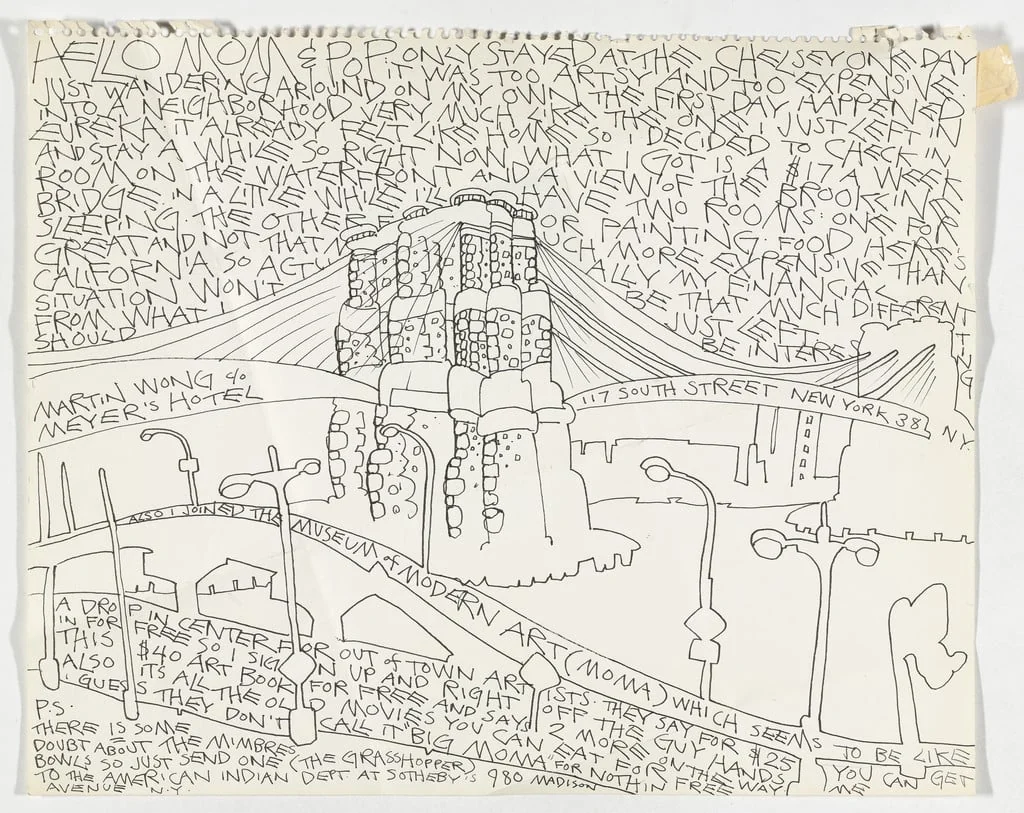 HELLO MOM & POP ONLY STAYED AT THE CHELSEY ONE DAY
JUST WANDERING AROUND ON MY OWN THE FIRST DAY HAPPENED
IT WAS TOO ARTSY AND TOO EXPENSIVE
INTO A NEIGHBORHOOD VERY MUCH LIKE THE ONE I JUST LEFT IN
EUREKA IT ALREADY FELT LIKE HOME SO I DECIDED TO CHECK IN
AND STAY A WHILE SO RIGHT NOW WHAT I GOT IS A $17 A WEEK
ROOM ON THE WATERFRONT AND A VIEW OF THE BROOKLYN
BRIDGE IN A LITLE WHILE I'LL HAVE TWO ROOMS ONE FOR
SLEEPING THE OTHER FOR PAINTING. FOOD HERE IS
GREAT AND NOT THAT MUCH MORE EXPENSIVE THAN
CALIFORNIA SO ACTUALLY MY FINANCIAL
SITUATION WON'T BE THAT MUCH DIFFERENT
FROM WHAT I JUST LEFT
SHOULD BE INTERESTING
MARTIN WONG c/o
MEYER'S HOTEL
117 SOUTH STREET NEW YORK 38, N.Y.
ALSO I JOINED THE MUSEUM of MODERN ART (MOMA) WHICH SEEMS TO BE LIKE
A DROP IN CENTER FOR OUT of TOWN ARTISTS. THEY SAY FOR $25 YOU CAN GET
IN FOR FREE SO I SIGN UP AND RIGHT OFF THE GUY HANDS ME
THIS $40 ART BOOK FOR FREE AND SAYS 2 MORE ON THE WAY
ALSO ITS ALL THE OLD MOVIES YOU CAN EAT FOR FREE
I GUESS THEY DON'T CALL IT "BIG MOMA" FOR NOTHIN
P.S.
THERE IS SOME
DOUBT ABOUT THE MIMBRES
BOWLS SO JUST SEND ONE (THE GRASSHOPPER)
TO THE AMERICAN INDIAN DEPT AT SOTHEBY'S 980 MADISON
AVENUE N.Y.